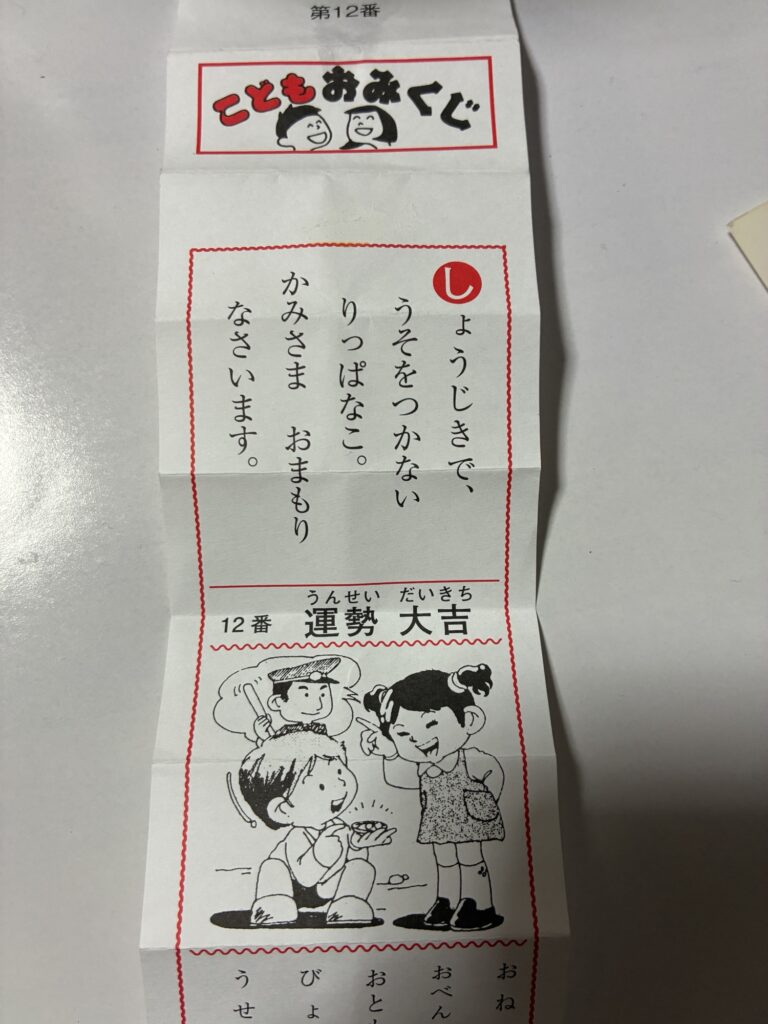 第12番
こどもおみくじ
しょうじきで、
うそをつかない
りっぱなこ。
かみさま　おまもり
なさいます。
うんせい　だいきち
12番　運勢　大吉
おね
おべん
おと
びょ
うせ